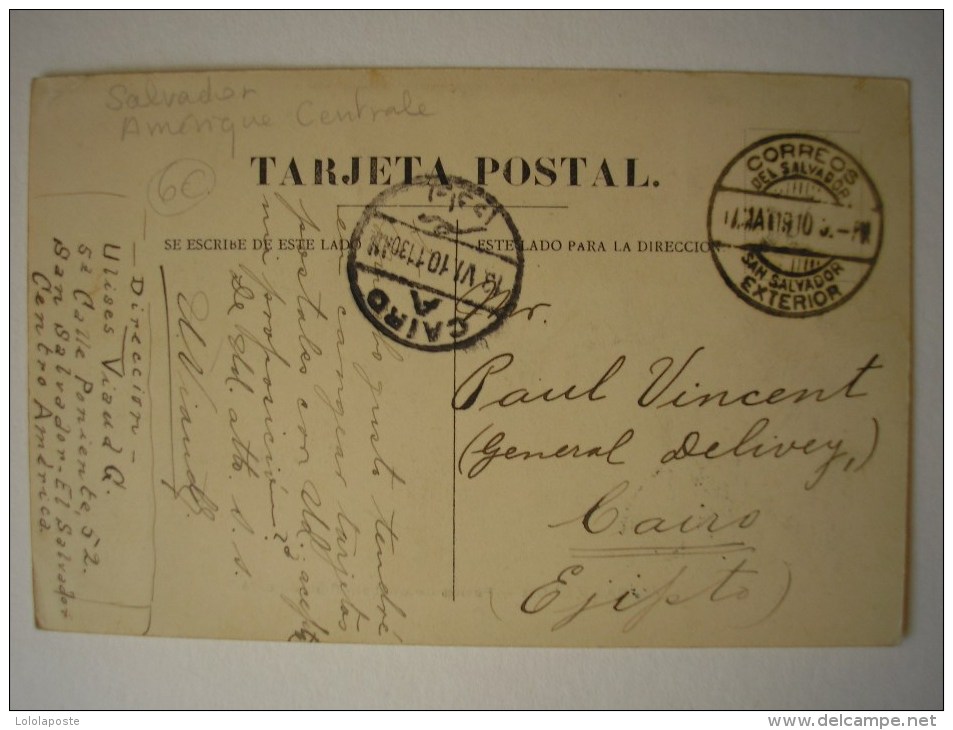 Salvador
Amérique Centrale
6€
TARJETA POSTAL.
SE ESCRIBE DE ESTE LADO
ESTE LADO PARA LA DIRECCION
CORREOS
DEL SALVADOR
SAN SALVADOR
EXTERIOR
CAIRO
A
VI. 10. 11 30 AM
Mr.
Paul Vincent
(General Delivey,)
Cairo
(Ejipto)
gusto tendré
en cangear tarjetas
postales con Ud. acepta
mi proposición?
De Ud. atto. s. s.
U. Viaud G.
— Dirección —
Ulises Viaud G.
5ª Calle Poniente, 52.
San Salvador - El Salvador
Centro América.
Lololaposte
www.delcampe.net